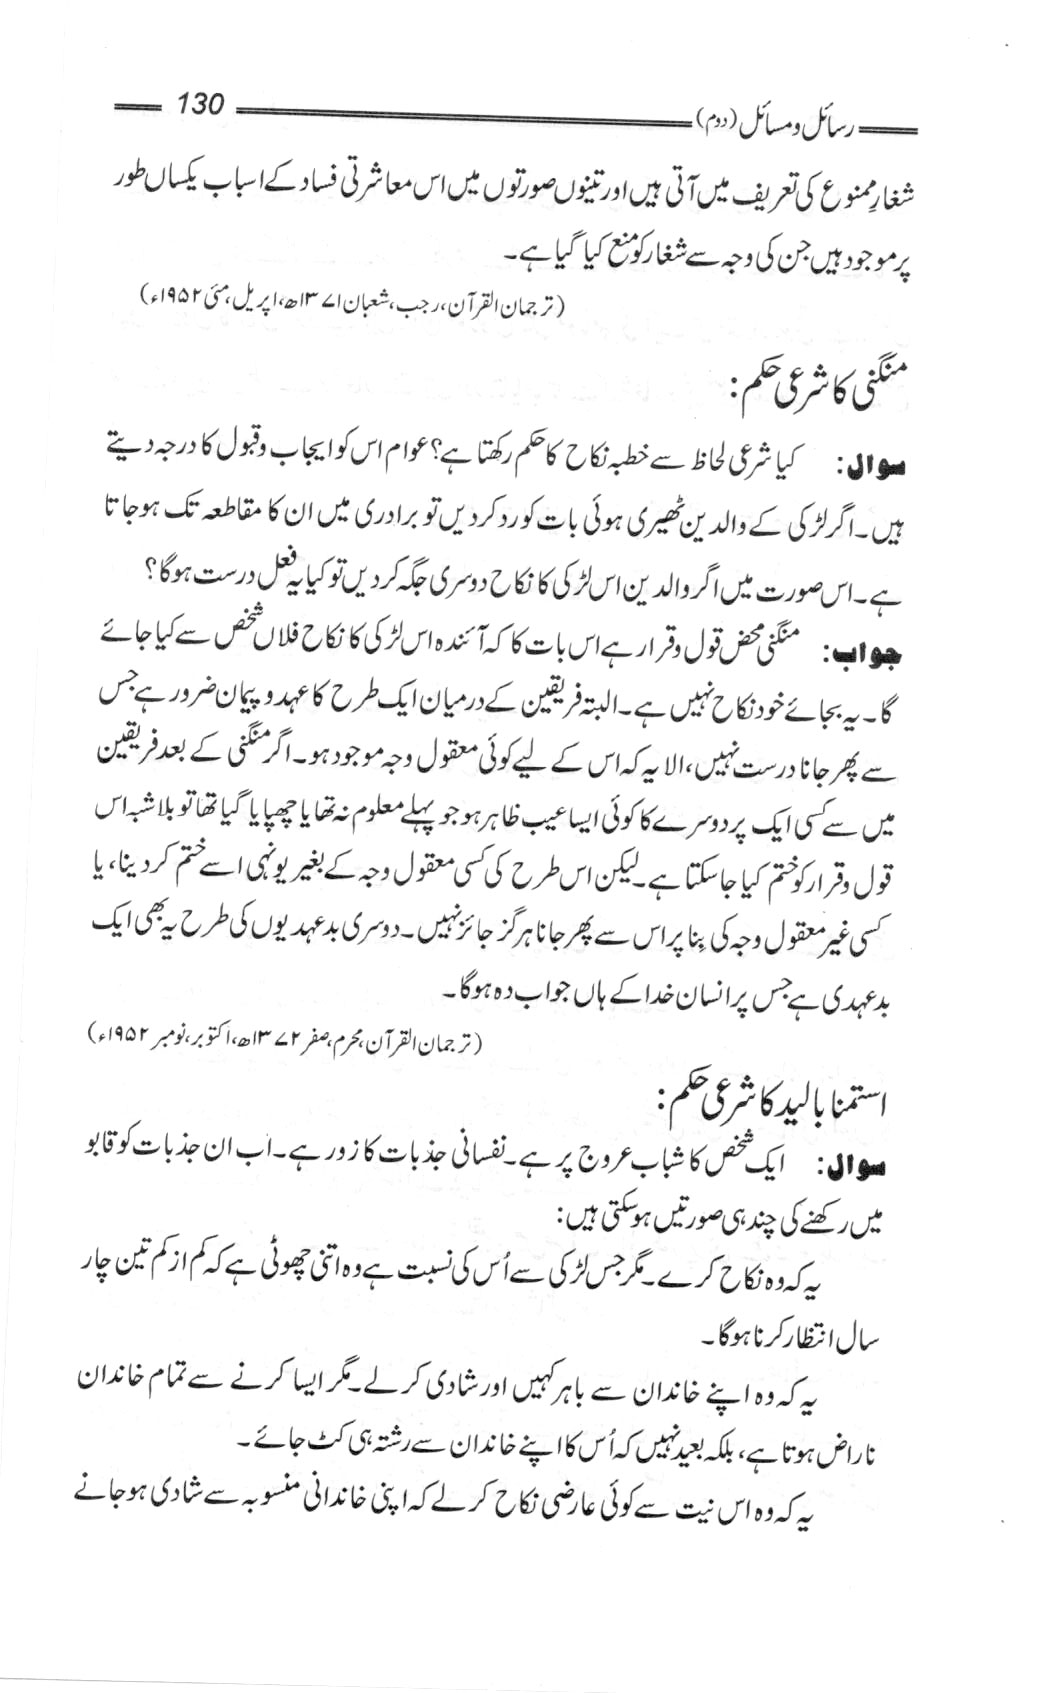 رسائل و مسائل (دوم) 130
شغارِ ممنوع کی تعریف میں آتی ہیں اور تینوں صورتوں میں اس معاشرتی فساد کے اسباب یکساں طور
پر موجود ہیں جن کی وجہ سے شغار کو منع کیا گیا ہے۔
(ترجمان القرآن، رجب، شعبان ۱۳۷۱ھ، اپریل، مئی ۱۹۵۲ء)
منگنی کا شرعی حکم:
سوال: کیا شرعی لحاظ سے خطبہ نکاح کا حکم رکھتا ہے؟ عوام اس کو ایجاب و قبول کا درجہ دیتے
ہیں۔ اگر لڑکی کے والدین ٹھیری ہوئی بات کو رد کر دیں تو برادری میں ان کا مقاطعہ تک ہو جاتا
ہے۔ اس صورت میں اگر والدین اس لڑکی کا نکاح دوسری جگہ کر دیں تو کیا یہ فعل درست ہوگا؟
جواب: منگنی محض قول و قرار ہے اس بات کا کہ آئندہ اس لڑکی کا نکاح فلاں شخص سے کیا جائے
گا۔ یہ بجائے خود نکاح نہیں ہے۔ البتہ فریقین کے درمیان ایک طرح کا عہد و پیمان ضرور ہے جس
سے پھر جانا درست نہیں، الا یہ کہ اس کے لیے کوئی معقول وجہ موجود ہو۔ اگر منگنی کے بعد فریقین
میں سے کسی ایک پر دوسرے کا کوئی ایسا عیب ظاہر ہو جو پہلے معلوم نہ تھا یا چھپایا گیا تھا تو بلاشبہ اس
قول و قرار کو ختم کیا جا سکتا ہے۔ لیکن اس طرح کی کسی معقول وجہ کے بغیر یونہی اسے ختم کر دینا، یا
کسی غیر معقول وجہ کی بِنا پر اس سے پھر جانا ہرگز جائز نہیں۔ دوسری بدعہدیوں کی طرح یہ بھی ایک
بدعہدی ہے جس پر انسان خدا کے ہاں جواب دہ ہوگا۔
(ترجمان القرآن، محرم، صفر ۱۳۷۲ھ، اکتوبر، نومبر ۱۹۵۲ء)
استمنا بالید کا شرعی حکم:
سوال: ایک شخص کا شباب عروج پر ہے۔ نفسانی جذبات کا زور ہے۔ اب ان جذبات کو قابو
میں رکھنے کی چند ہی صورتیں ہو سکتی ہیں:
یہ کہ وہ نکاح کرے۔ مگر جس لڑکی سے اُس کی نسبت ہے وہ اتنی چھوٹی ہے کہ کم از کم تین چار
سال انتظار کرنا ہوگا۔
یہ کہ وہ اپنے خاندان سے باہر کہیں اور شادی کر لے۔ مگر ایسا کرنے سے تمام خاندان
ناراض ہوتا ہے، بلکہ بعید نہیں کہ اُس کا اپنے خاندان سے رشتہ ہی کٹ جائے۔
یہ کہ وہ اس نیت سے کوئی عارضی نکاح کر لے کہ اپنی خاندانی منسوبہ سے شادی ہو جانے